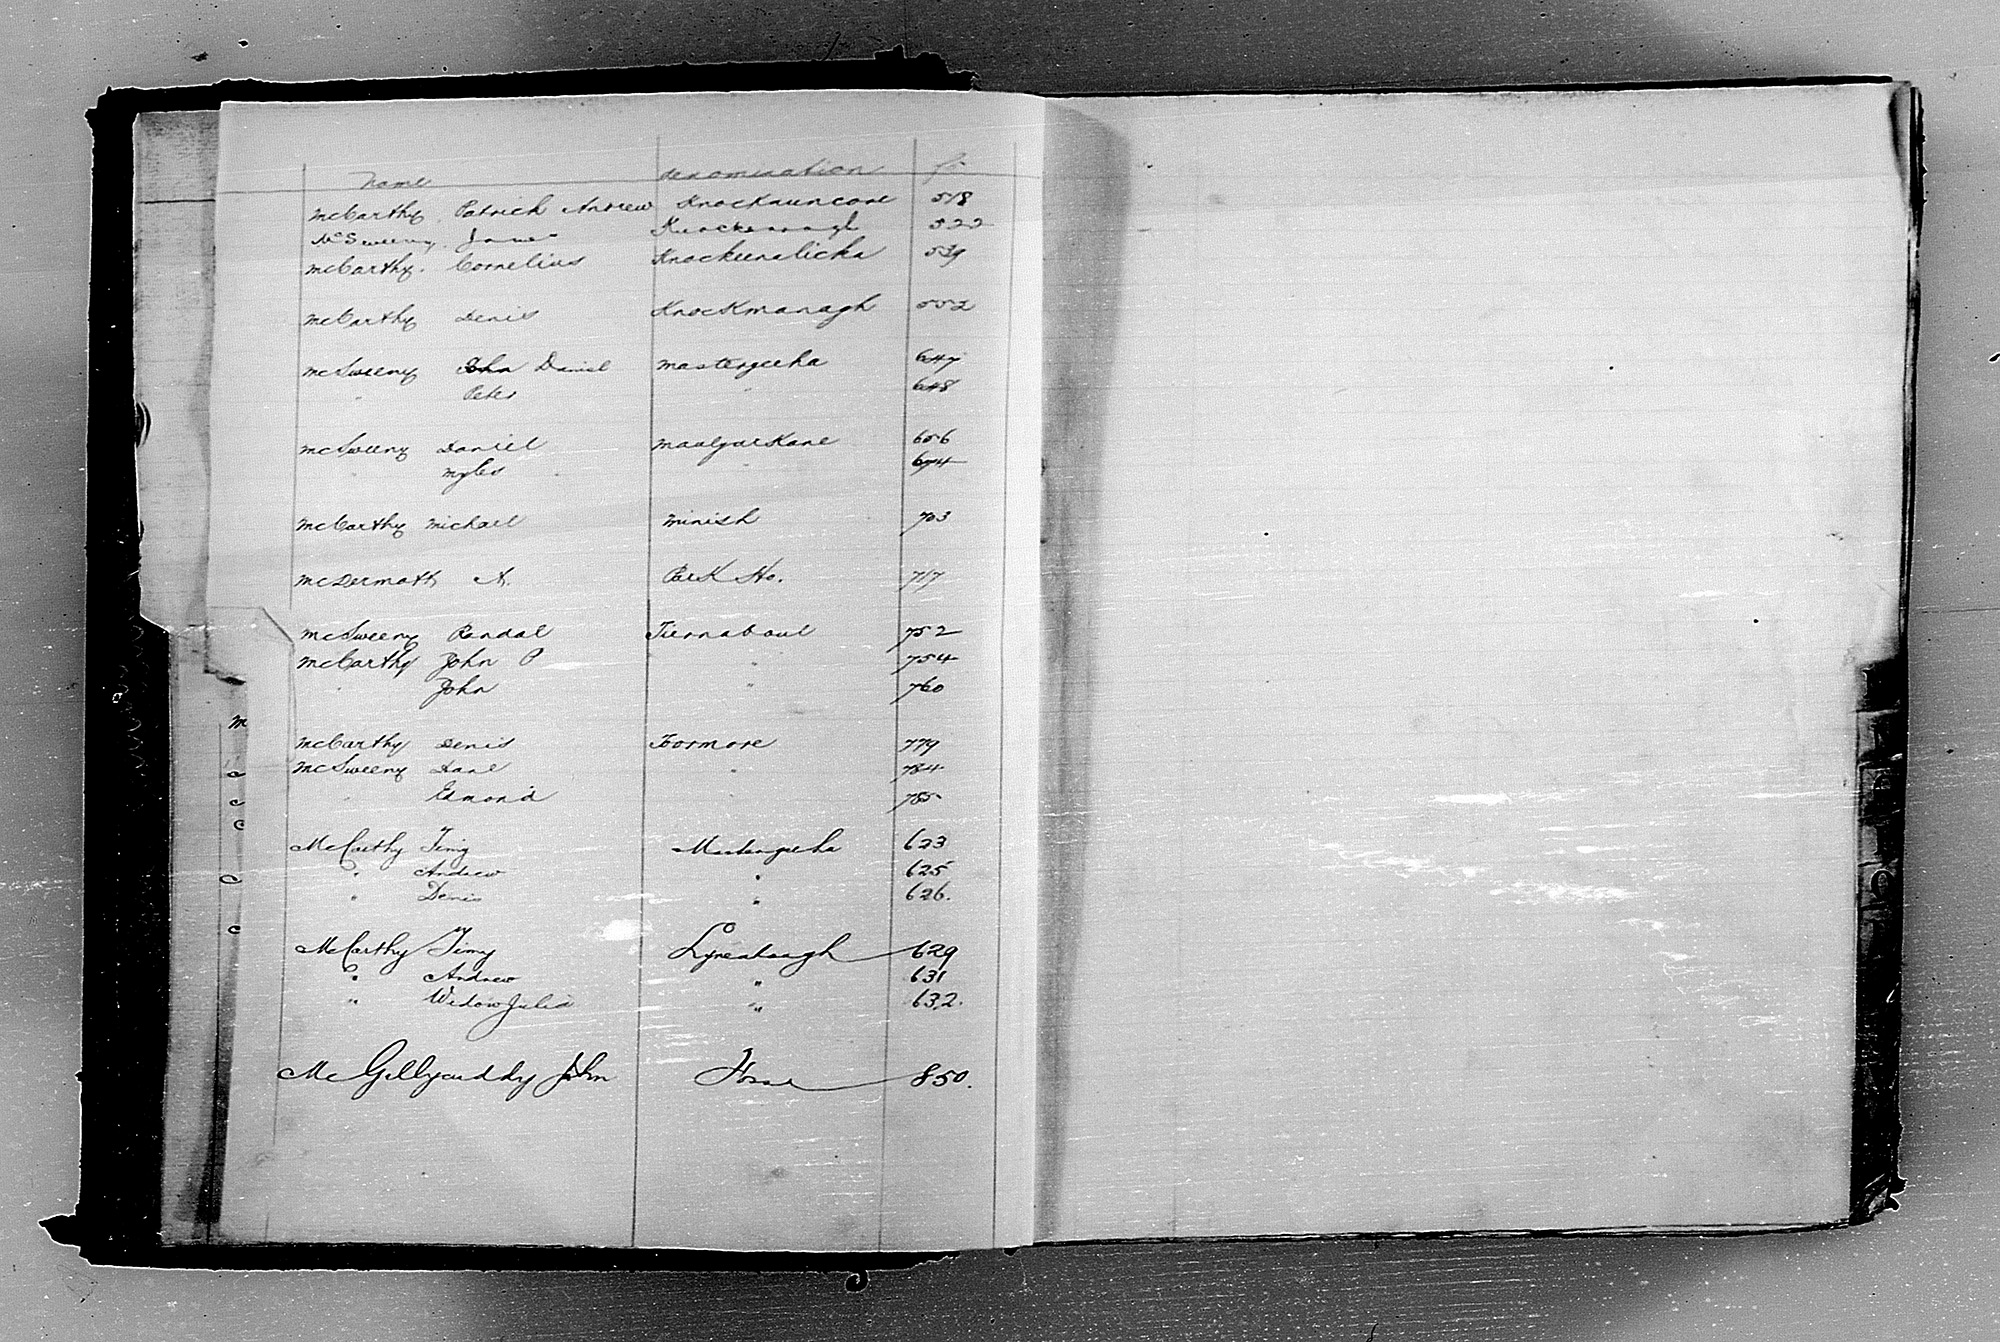 name denomination fo
McCarthy Patrick Andrew Knocknuncore 518
McSweeny James 522
McCarthy. Cornelius Knockeenalicka 539
McCarthy Denis Knockmanagh 552
McSweeny John Daniel Mastergeeha 647
" Peter 648
McSweeny Daniel Maulyarkane 656
" Myles " 674
McCarthy Michael Minish 703
McDermott A. Park Ho. 717
McSweeny Randal Tiernaboul 752
McCarthy John P " 754
" John " 760
McCarthy Denis Tormore 779
McSweeny Dane " 784
" Edmond " 785
McCarthy Timy Mastergeeha 623
" Andrew " 625
" Denis " 626.
McCarthy Timy 629
" Andrew " 631
" Widow Julia " 632.
McGillycuddy John 850.
m
c
c
c
c
c